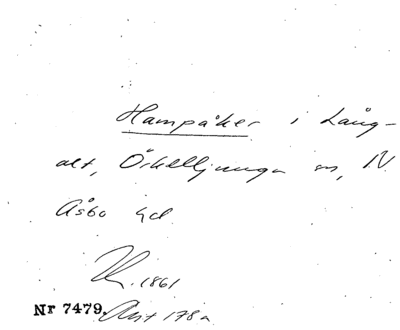 Hampåker i Lång-
alt, Örkelljunga sn, N.
Åsbo hd.
1861
Nr 7479. Avst 178a